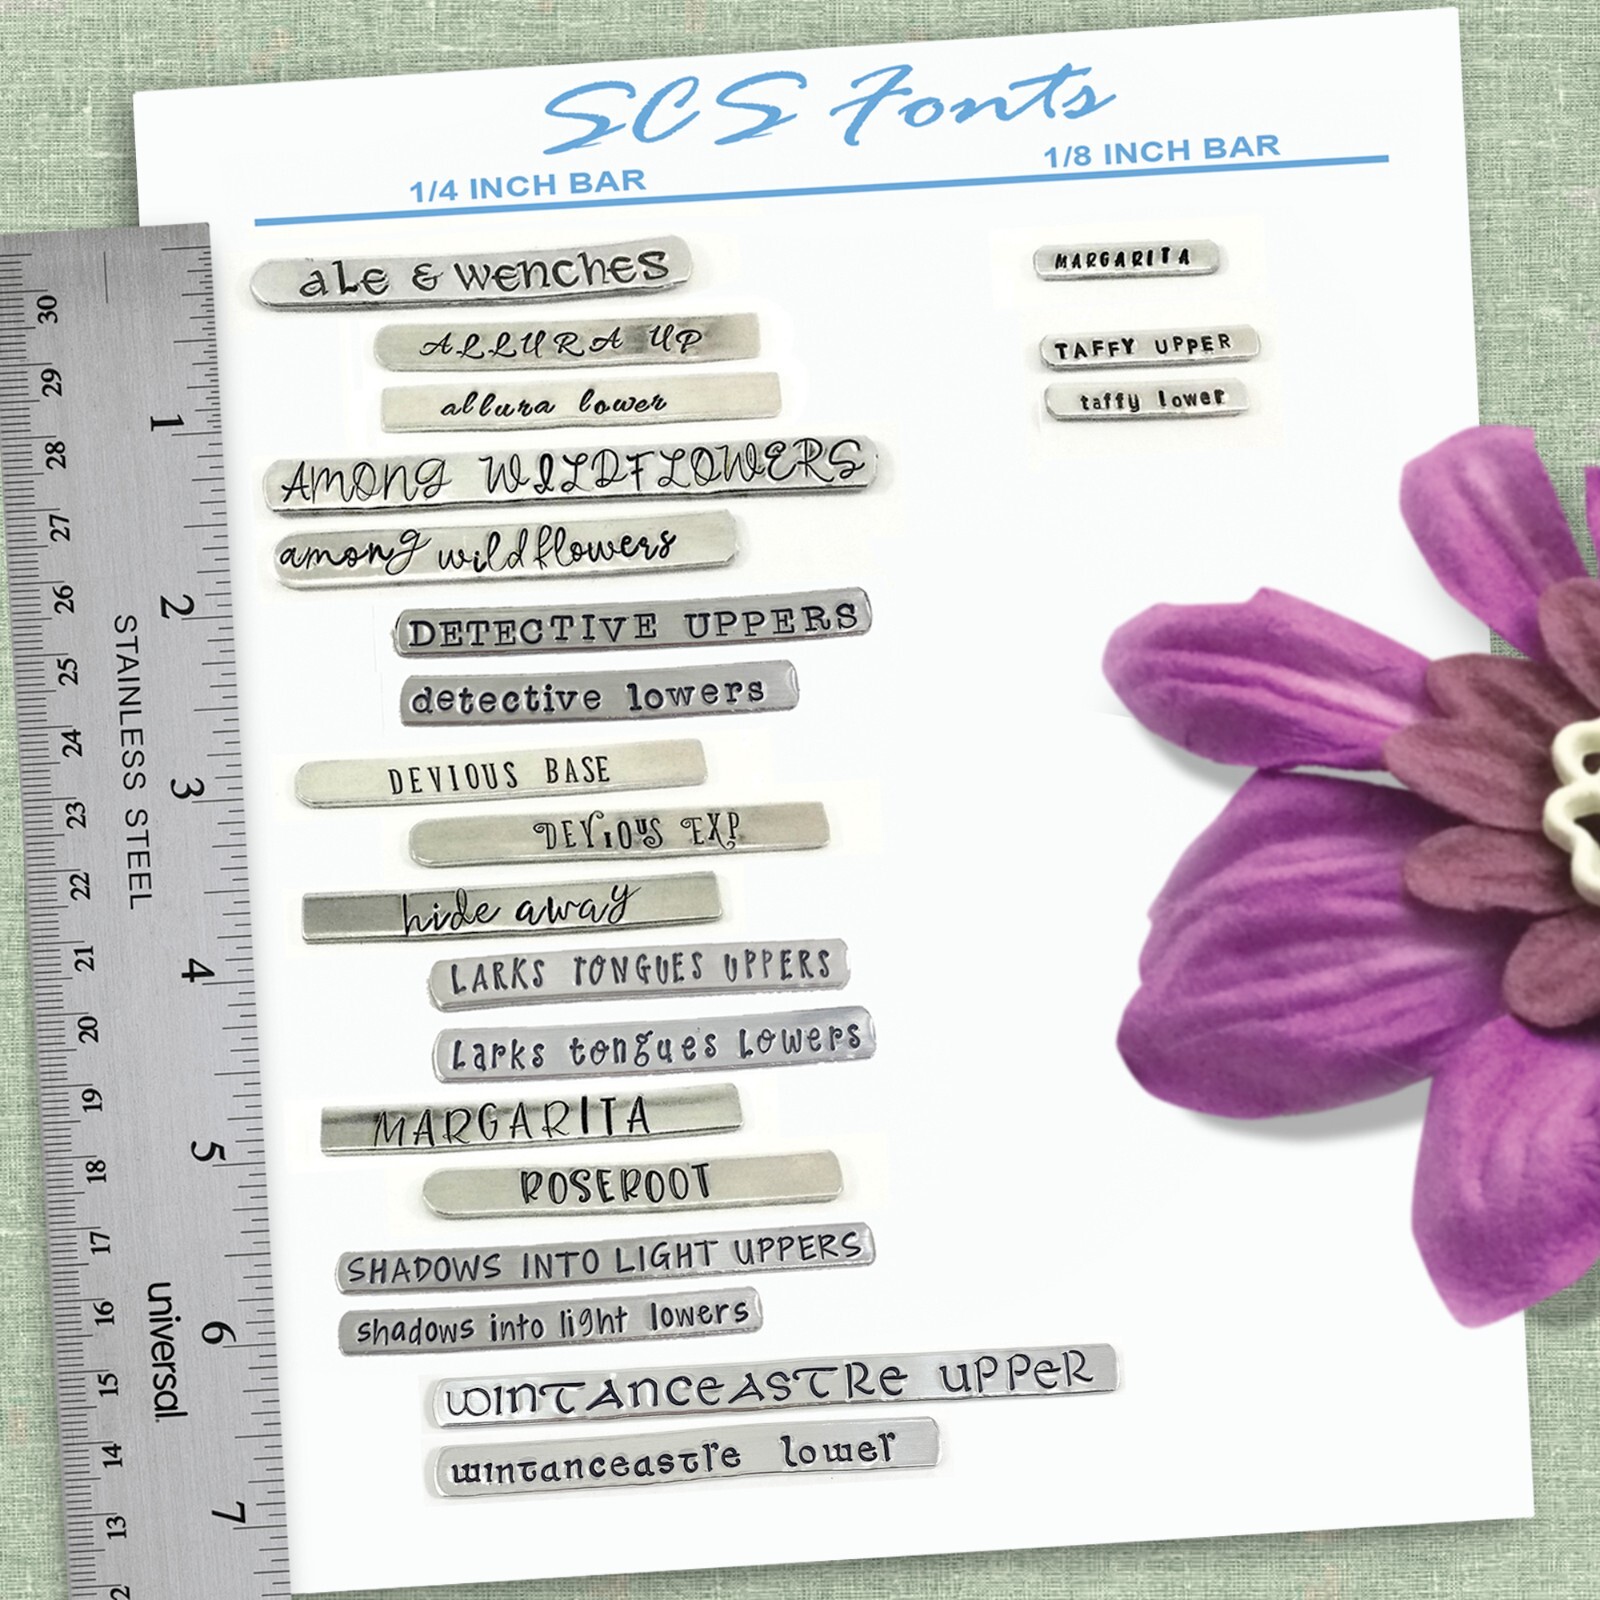 SCS Fonts
1/4 INCH BAR
1/8 INCH BAR
aLe & wenches
MARGARITA
ALLURA UP
TAFFY UPPER
allura lower
taffy lower
AMONG WILDFLOWERS
among wildflowers
DETECTIVE UPPERS
detective lowers
DEVIOUS BASE
DEViOUS EXP
hide away
LARKS TONGUES UPPERS
Larks tongues Lowers
MARGARITA
ROSEROOT
SHADOWS INTO LIGHT UPPERS
shadows into light lowers
WINTANCEASTRE UPPER
wintanceastre lower
30
29
28
27
26
25
24
23
22
21
20
19
18
17
16
15
14
13
2
1
2
3
4
5
6
7
STAINLESS STEEL
universal